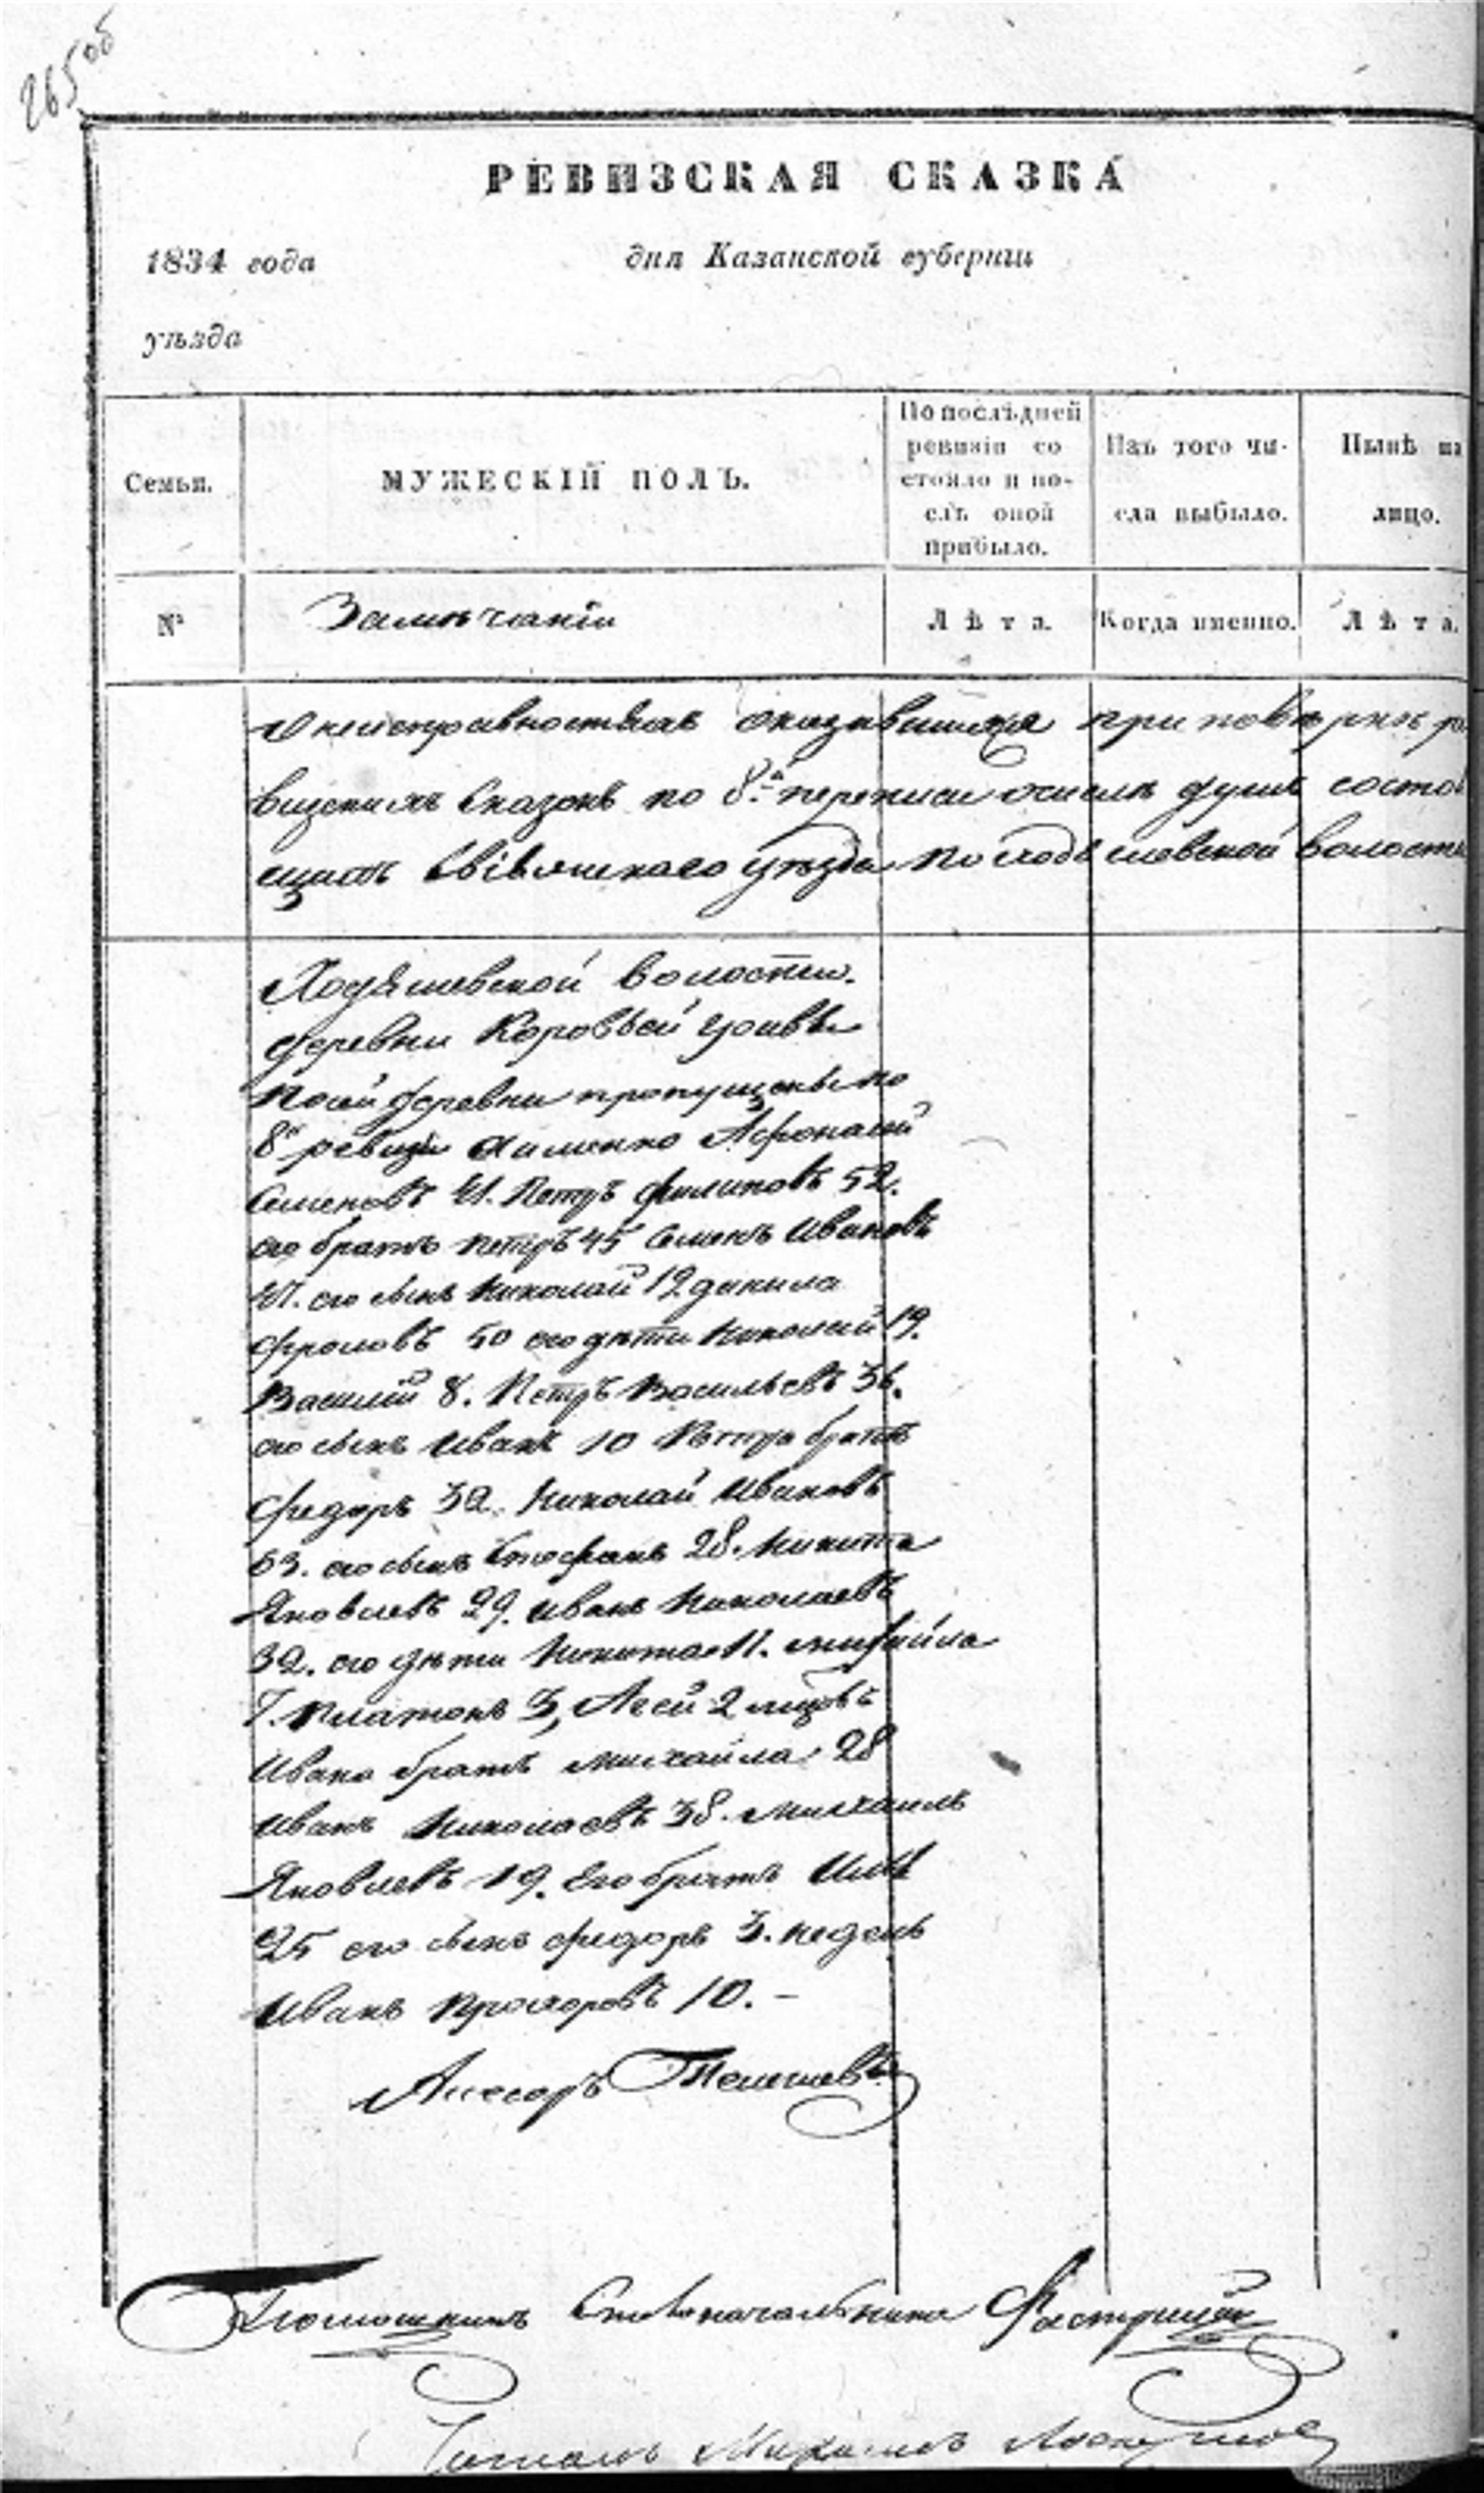 265об
РЕВИЗСКАЯ СКАЗКА
1834 года дня Казанской губерніи
уѣзда
Семьи. МУЖЕСКІЙ ПОЛЪ. По послѣдней ревизіи состояло и послѣ оной прибыло. Изъ того числа выбыло. Нынѣ на лицо.
№ Замѣчаніи Лѣта. Когда именно. Лѣта.
О неисправностяхъ оказавшихся при повѣркѣ ре
визскихъ сказокъ по 8й переписи о числѣ душъ состоя
щихъ Свіяжскаго уѣзда по Ходяшевской волости
Ходяшевской волости.
деревни Коровьей
По сей деревни пропущены по
8й ревизіи а именно Афонасий
Семеновъ 41. Петръ Филиповъ 52.
его братъ Петръ 45 Семенъ Ивановъ
47. его сынъ Николай 12 данила
Фроловъ 50 его дѣти Николай 19.
Василий 8. Петръ Васильевъ 36.
его сынъ Иванъ 10 Петра братъ
Федоръ 32. Николай Ивановъ
63. его сынъ Стефанъ 28. Никита
Яковлевъ 29. Иванъ Николаевъ
32. его дѣти Никита 11. Михайла
7. Платонъ 3, Агей 2
Ивана братъ Михайла 28
Иванъ Николаевъ 38. Михаилъ
Яковлевъ 19. Его братъ
25 его сынъ Федоръ 3. недель
Иванъ Прохоровъ 10. –
Асесоръ
Помошникъ Столоначальника
Читалъ Михаилъ